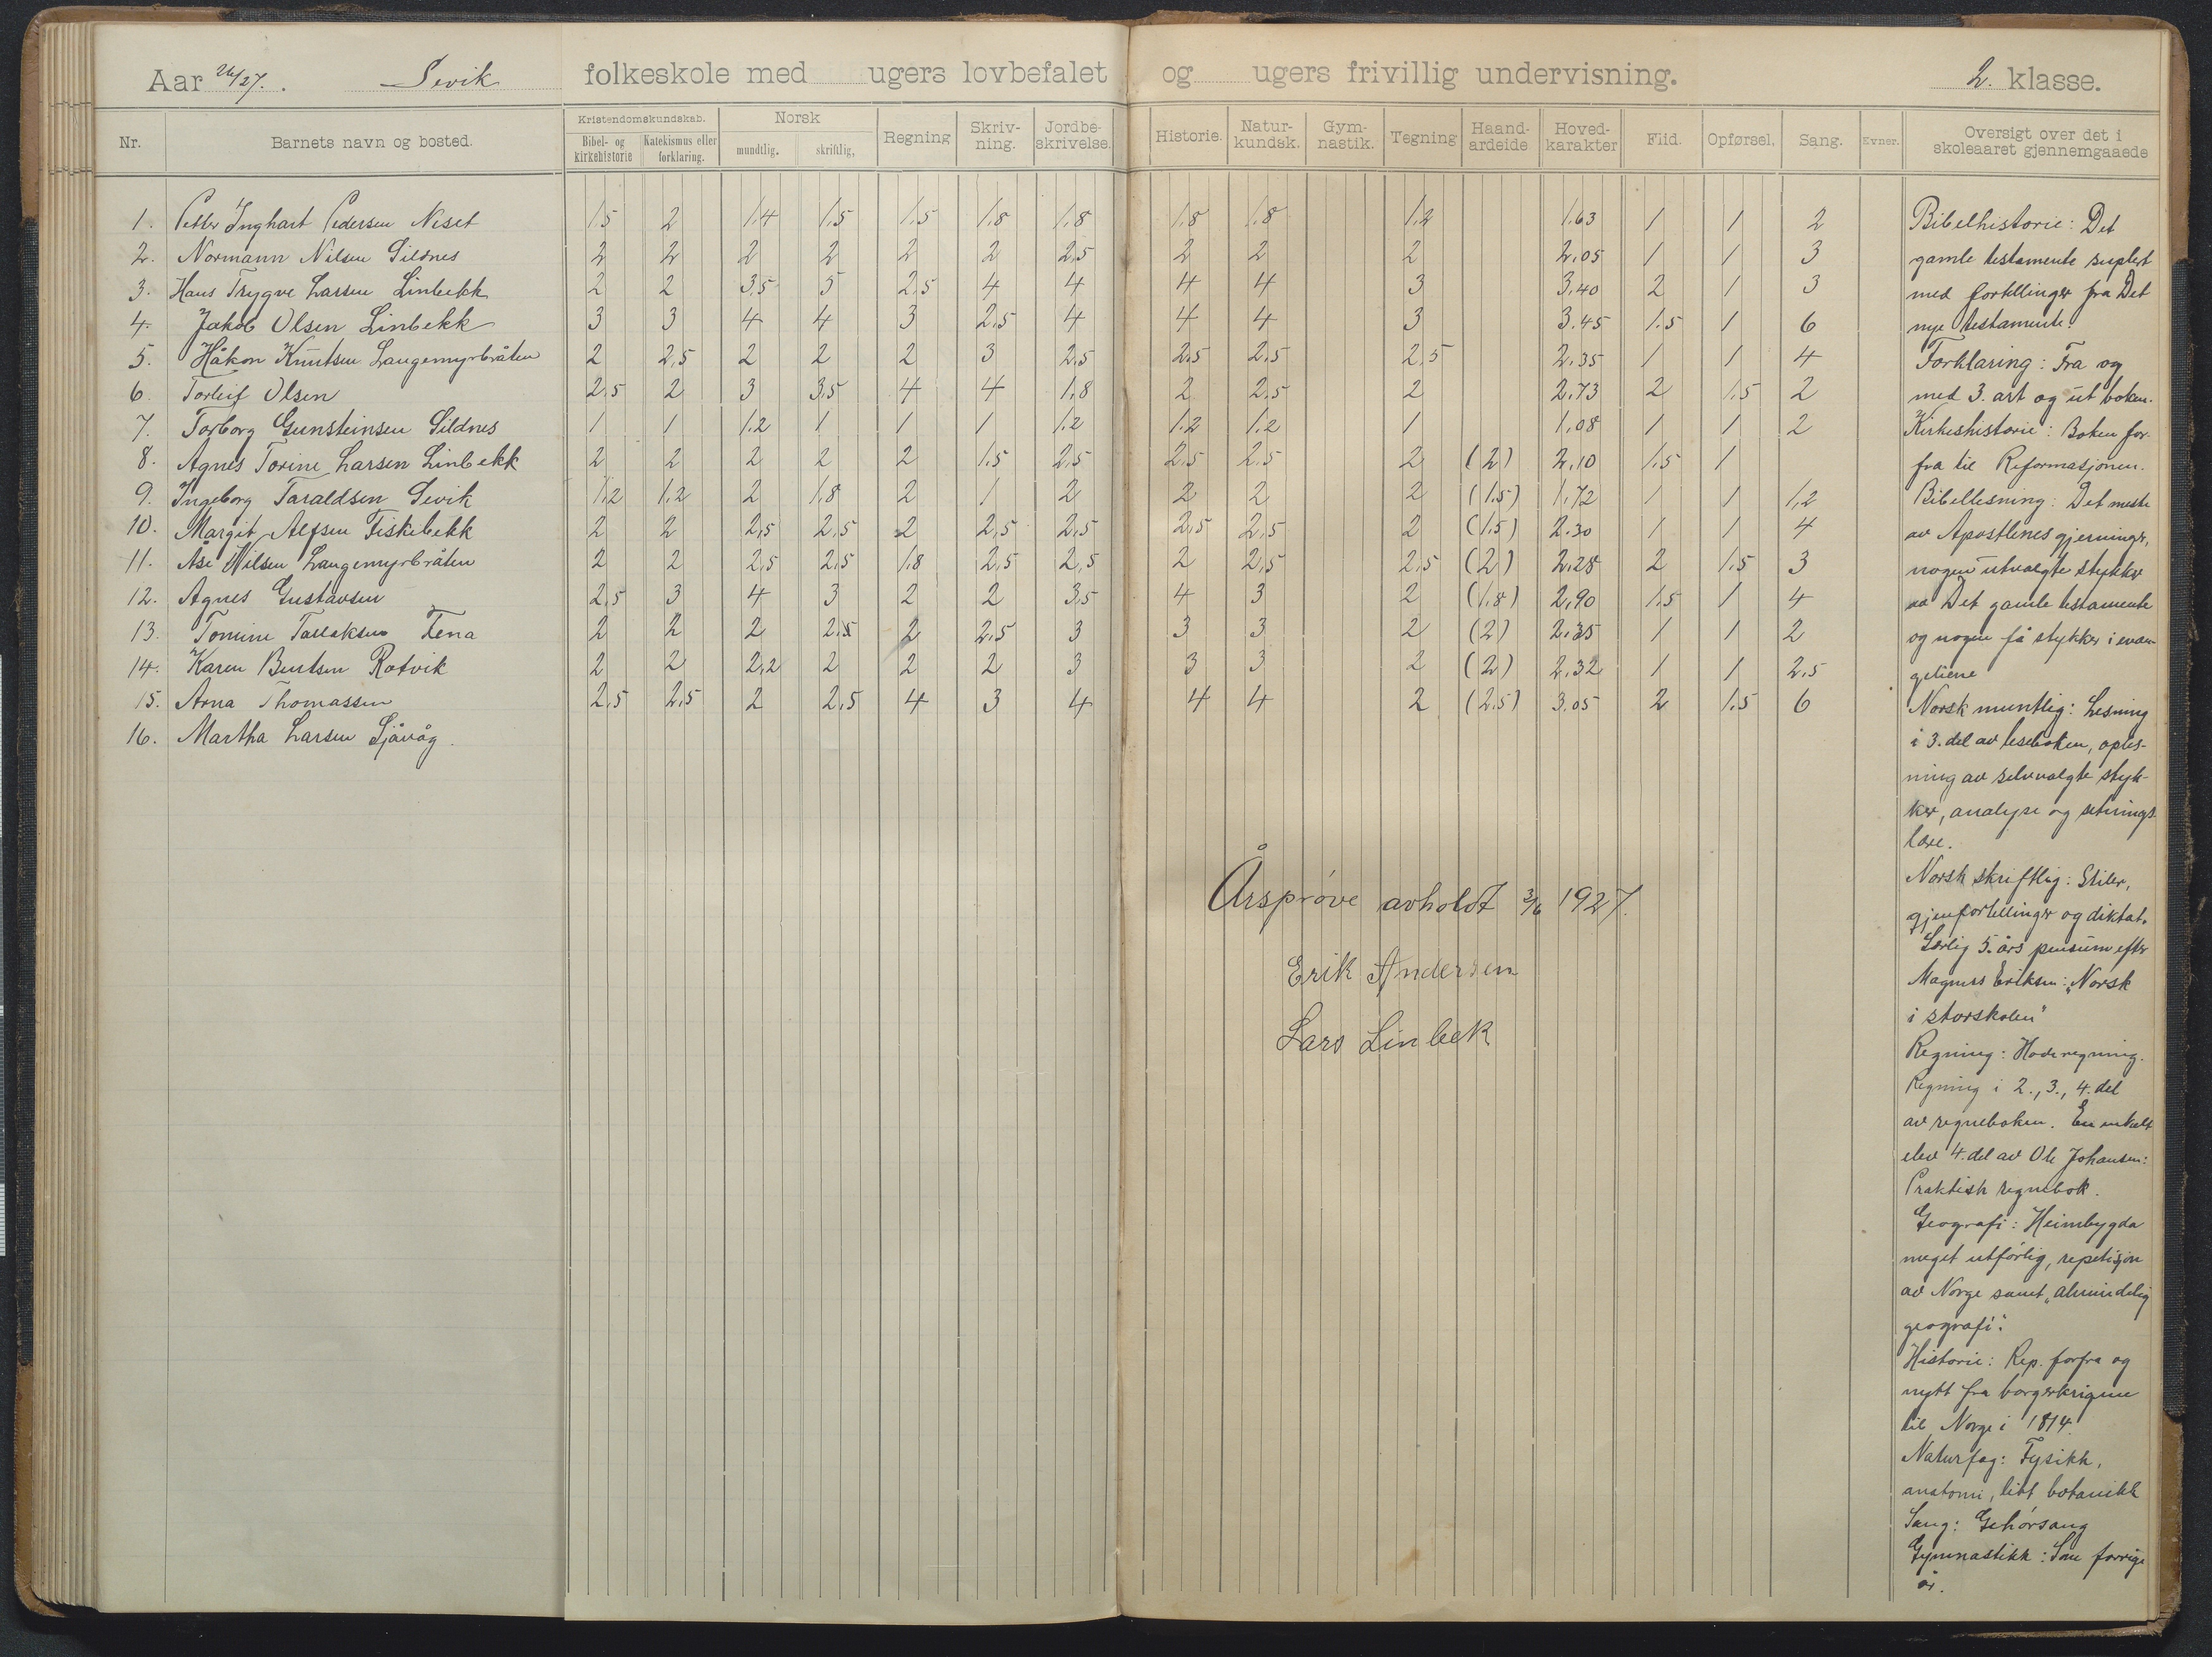 Aar 26/27. Sevik folkeskole med ugers lovbefalet og ugers frivillig undervisning. 2. klasse.
Nr. Barnets navn og bosted. Kristendomskundskab. Bibel- og kirkehistorie Katekismus eller forklaring. Norsk mundtlig. skriftlig, Regning Skriv-ning. Jordbe-skrivelse. Historie. Natur-kundsk. Gym-nastik. Tegning Haand-ardeide Hoved-karakter Flid. Opførsel. Sang. Evner. Oversigt over det i skoleaaret gjennemgaaede
1. Petter Inghart Pedersen Neset 1.5 2 1.4 1.5 1.5 1.8 1.8 1.8 1.8 1.2 1.63 1 1 2
2. Normann Nilsen Sildnes 2 2 2 2 2 2 2,5 2 2 2 2.05 1 1 3
3. Hans Trygve Larsen Linbekk 2 2 3,5 5 2.5 4 4 4 4 3 3.40 2 1 3
4. Jakob Olsen Linbekk 3 3 4 4 3 2,5 4 4 4 3 3.45 1.5 1 6
5. Håkon Knutsen Langemyrbråten 2 2,5 2 2 2 3 2,5 2.5 2,5 2.5 2.35 1 1 4
6. Torleif Olsen 2,5 2 3 3,5 4 4 1,8 2 2.5 2 2.73 2 1.5 2
7. Torborg Gunsteinsen Sildnes 1 1 1.2 1 1 1 1.2 1.2 1.2 1 1.08 1 1 2
8. Agnes Torine Larsen Linbekk 2 2 2 2 2 1.5 2,5 2.5 2.5 2 (2) 2,10 1.5 1
9. Ingeborg Taraldsen Sevik 1,2 1,2 2 1.8 2 1 2 2 2 2 (1.5) 1.72 1 1 1,2
10. Margit Alfsen Fiskebekk 2 2 2,5 2,5 2 2,5 2,5 2,5 2,5 2 (1.5) 2.30 1 1 4
11. Åse Nilsen Langemyrbråten 2 2 2,5 2.5 1.8 2,5 2,5 2 2,5 2.5 (2) 2,28 2 1.5 3
12. Agnes Gustavsen 2,5 3 4 3 2 2 3,5 4 3 2 (1.8) 2,90 1.5 1 4
13. Tomine Tallaksen Tena 2 2 2 2.5 2 2.5 3 3 3 2 (2) 2.35 1 1 2
14. Karen Bentsen Rotvik 2 2 2,2 2 2 2 3 3 3 2 (2) 2.32 1 1 2.5
15. Arna Thomassen 2,5 2,5 2 2,5 4 3 4 4 4 2 (2.5) 3.05 2 1.5 6
16. Martha Larsen Sjåvåg.
Årsprøve avholdt 3/6 1927.
Erik Andersen
Lars Linbek
Bibelhistorie: Det
gamle testamente suplert
med fortellinger fra Det
nye testamente.
Forklaring: Fra og
med 3. art og ut boken.
Kirkeshistorie: Boken for-
fra til Reformasjonen.
Bibellesning: Det meste
av Apostlenes gjerninger,
nogen utvalgte stykker
av Det gamle testamente
og nogen få stykker i evan-
geliene
Norsk muntlig: Lesning
i 3. del av leseboken, oples-
ning av selvvalgte styk-
ker, analyse og setnings-
lære.
Norsk skriftlig: Stiler,
gjenfortellinger og diktat.
Særlig 5. års pensum efter
Magnus Eriksen: "Norsk
i storskolen"
Regning: Hoderegning.
Regning i 2., 3., 4. del
av regneboken. En enkelt
elev 4. del av Ole Johansen:
Praktisk regnebok.
Geografi: Heimbygda
meget utførlig, repetisjon
av Norge samt "almindelig
geografi".
Historie: Rep. forfra og
nytt fra borgerkrigene
til Norge i 1814.
Naturfag: Fysikk,
anatomi, litt botanikk
Sang: Gehørsang
Gymnastikk: Som forrige
år.